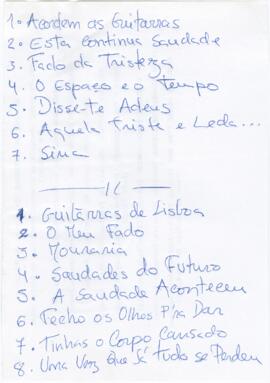 1. Acordem as Guitarras
2. Esta continua Saudade
3. Fado da Tristeza
4. O Espaço e o tempo
5. Disse-te Adeus
6. Aquela triste e Leda...
7. Sina
1. Guitarras de Lisboa
2. O Meu Fado
3. Mouraria
4. Saudades do Futuro
5. A Saudade Aconteceu
6. Fecho os Olhos P'ra Dar
7. Tinhas o Corpo Cansado
8. Uma Vez Que Já Tudo se Perdeu